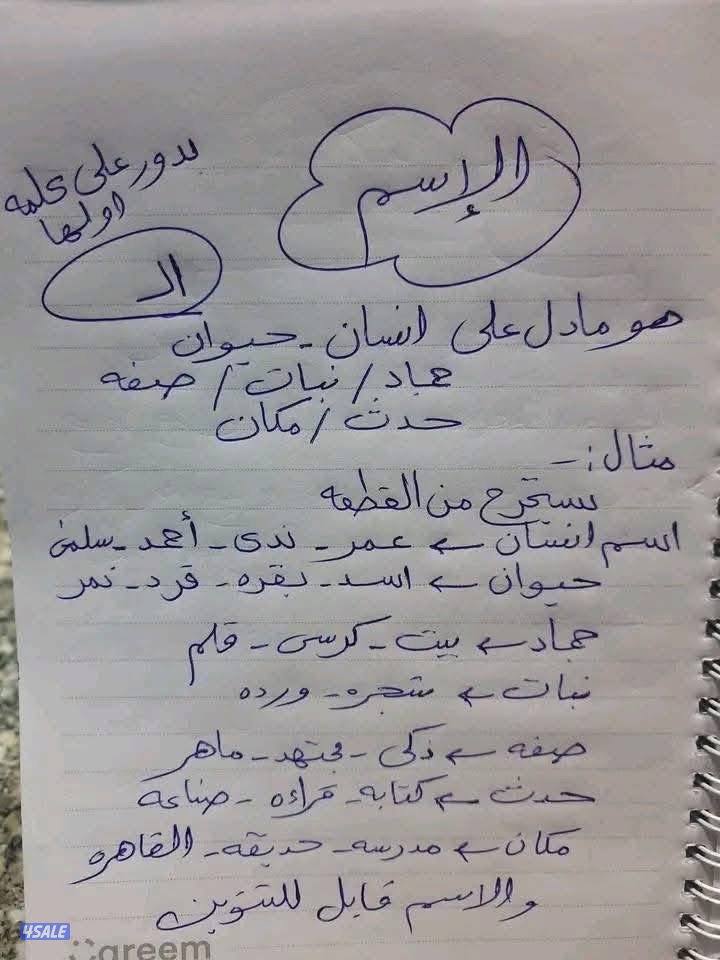 الإسم
بدور على كلمه
اولها
ال
هو ما دل على انسان - حيوان
جماد / نبات / صفه
حدث / مكان
مثال :-
نستخرج من القطعه
اسم انسان ← عمر - ندى - أحمد - سلمى
حيوان ← اسد - بقره - قرد - نمر
جماد ← بيت - كرسى - قلم
نبات ← شجره - ورده
صفه ← ذكى - مجتهد - ماهر
حدث ← كتابه - قراءه - صناعه
مكان ← مدرسه - حديقه - القاهره
والاسم قابل للتنوين
4SALE
areem